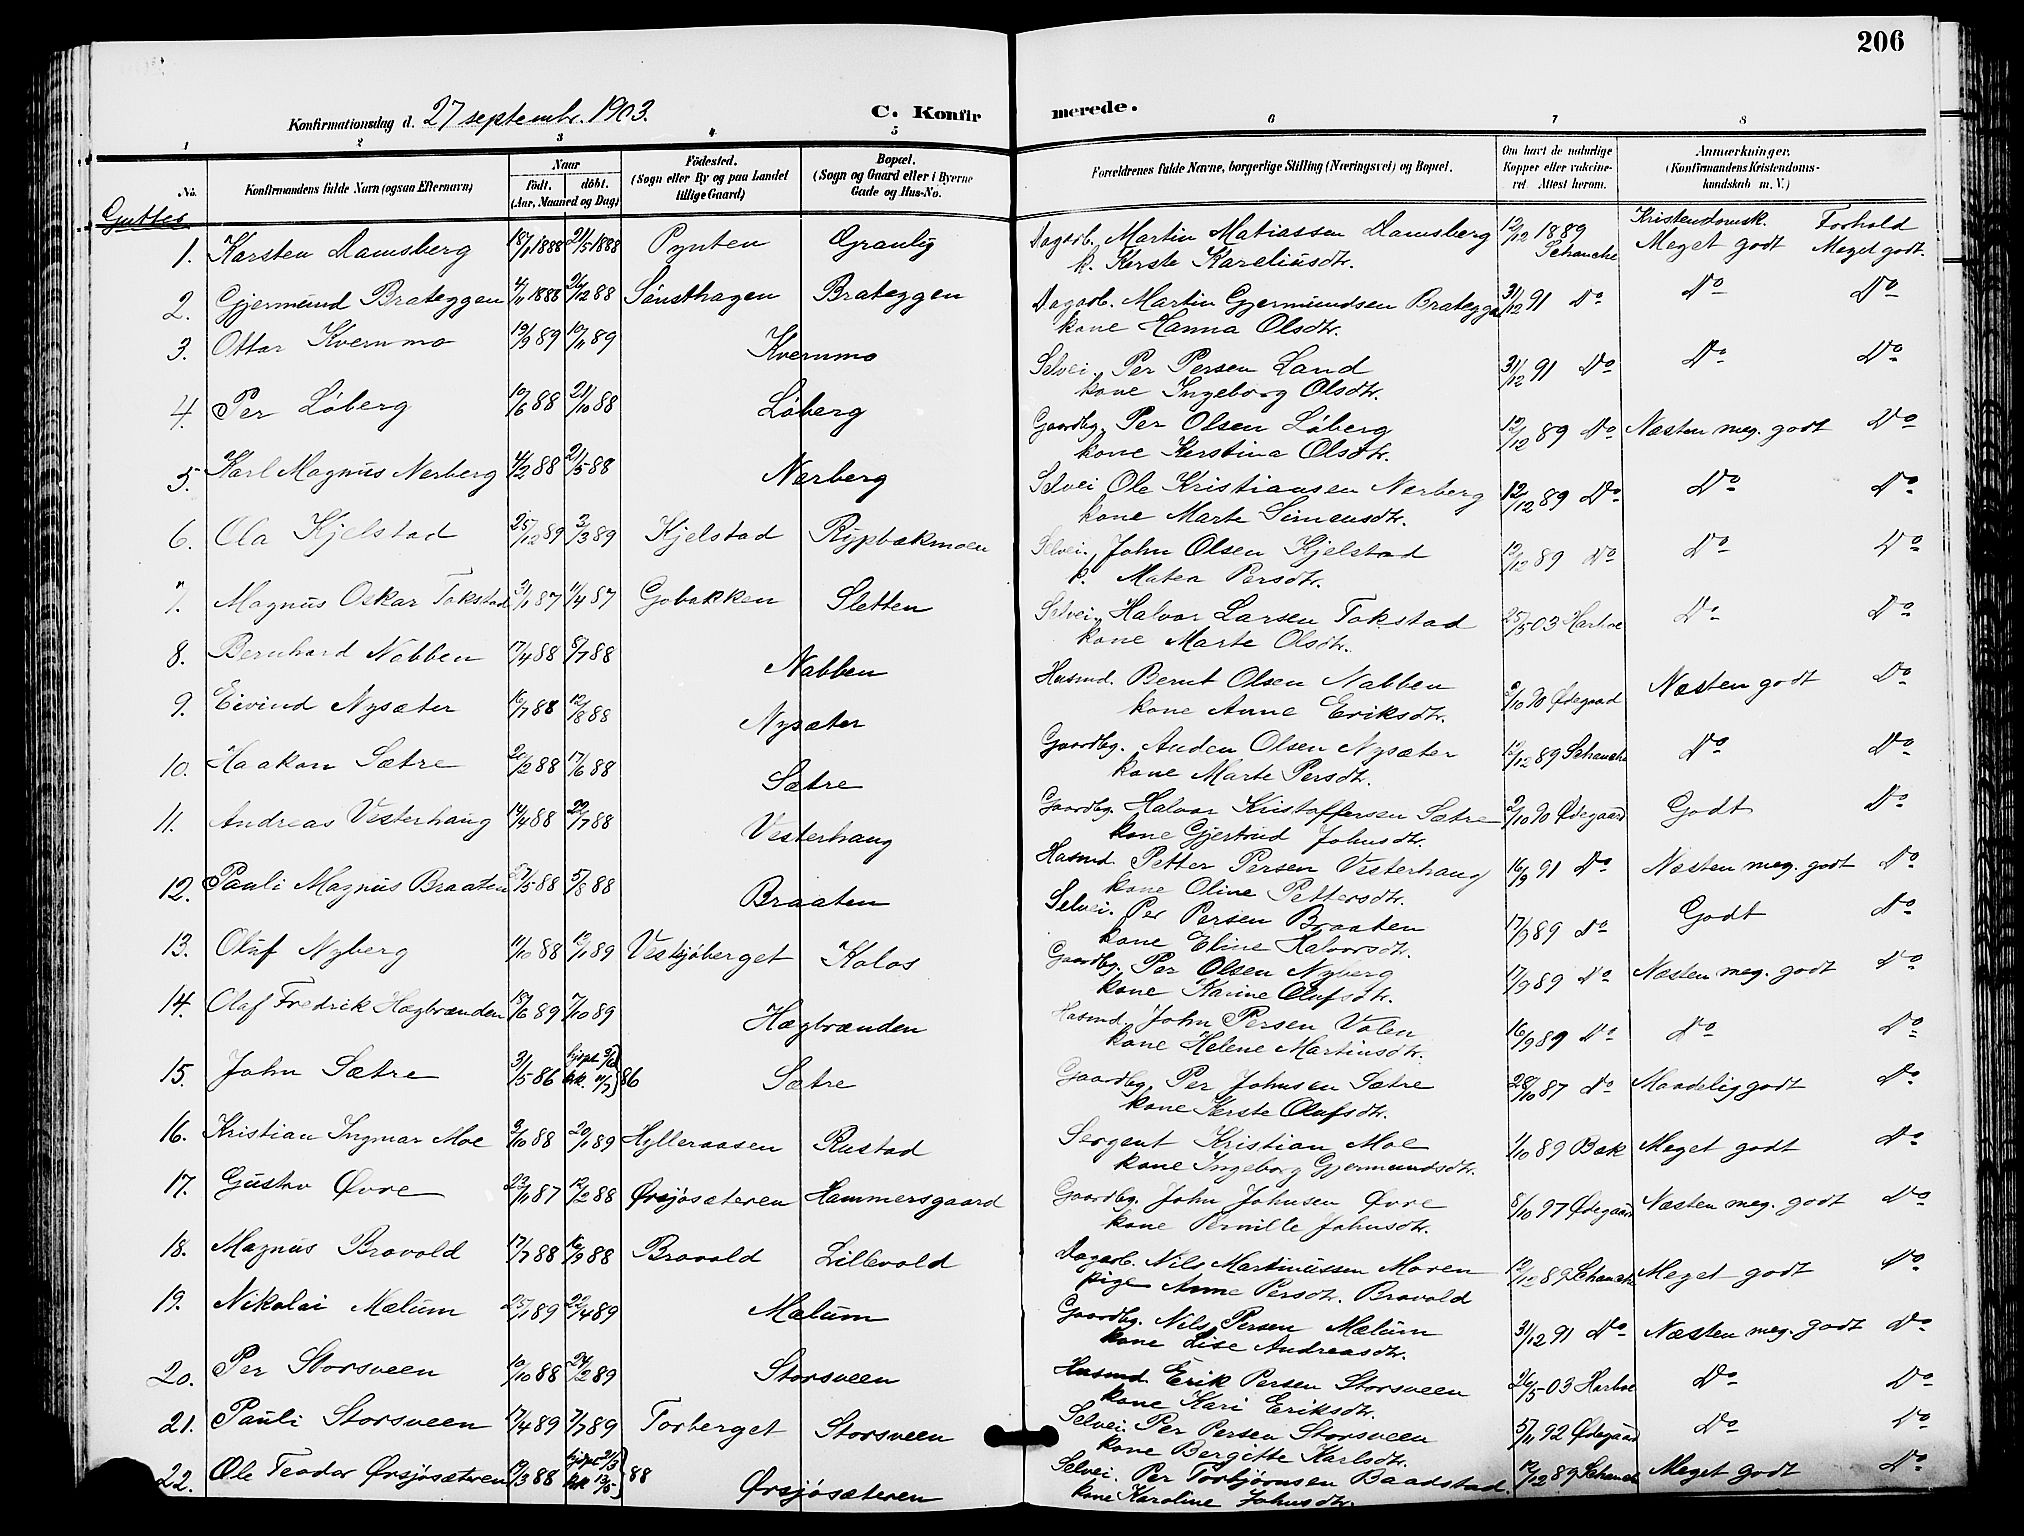 206
Konfirmationsdag d. 27 septembr. 1903. C. Konfirmerede.
1 2 3 4 5 6 7 8
No. Konfirmandens fulde Navn (ogsaa Efternavn) Naar født. døbt. (Aar, Maaned og Dag) Fødested. (Sogn eller By og paa Landet tillige Gaard) Bopæl. (Sogn og Gaard eller i Byerne Gade og Hus-No. Forældrenes fulde Navne, borgerlige Stilling (Næringsvei) og Bopæl. Om havt de naturlige Kopper eller vakcineret. Attest herom. Anmærkninger. (Konfirmandens Kristendomskundskab m. V.)
Gutter
Kristendomsk. Forhold
1. Karsten Ramsberg 18/1 1888 21/5 1888 Pynten Graulig Dagarb. Martin Matiassen Ramsberg 12/12 1889 Schanche Meget godt Meget godt.
k. Kerste Kareliusdtr.
2. Gjermund Brateggen 4/11 1888 26/12 88 Sønsthagen Brateggen Dagarb. Martin Gjermundsen Brateggen 31/12 91 Do Do Do
kone Hanna Olsdtr.
3. Ottar Kvernmo 19/9 89 10/11 89 Kvernmo Selvei. Per Persen Land 31/12 91 Do Do Do
kone Ingeborg Olsdtr.
4. Per Løberg 10/6 88 21/10 88 Løberg Gaardbg. Per Olsen Løberg 12/12 89 Do Næsten meg. godt Do
kone Kerstina Olsdtr.
5. Karl Magnus Nerberg 4/2 88 21/5 88 Nerberg Selvei Ole Kristiansen Nerberg 12/12 89 Do Do Do
kone Marte Simensdtr.
6. Ola Kjelstad 25/12 89 3/3 89 Kjelstad Rypbakmoen Selvei. John Olsen Kjelstad 12/12 89 Do Do Do
k. Matea Persdtr.
7. Magnus Oskar Tokstad 31/1 87 1/4 87 Gobakken Sletten Selvei. Halvor Larsen Tokstad 25/5 03 Do Do
kone Marte Olsdtr.
8. Bernhard Nabben 17/4 88 8/7 88 Nabben Husmd. Bernt Olsen Nabben 2/10 90 Ødegaard Næsten godt Do
kone Anne Eriksdtr.
9. Eivind Nysæter 16/7 88 12/8 88 Nysæter Gaardbg. Auden Olsen Nysæter 12/12 89 Schanche Do Do
kone Marte Persdtr.
10. Haakon Sætre 20/2 88 17/6 88 Sætre Gaardbg. Halvor Kristoffersen Sætre 2/10 90 Ødegaard Godt Do
kone Gjertrud Johnsdtr.
11. Andreas Vesterhaug 14/4 88 22/7 88 Vesterhaug Husmd. Petter Persen Vesterhaug 16/9 91 Do Næsten meg. godt Do
kone Oline Pettersdtr.
12. Pauli Magnus Braaten 27/5 88 5/8 88 Braaten Selvei. Per Persen Braaten 17/9 89 Do Godt Do
kone Eline Halvorsdtr.
13. Oluf Nyberg 11/10 88 13/1 89 Vestsjøberget Kolos Gaardbg. Per Olsen Nyberg 17/9 89 Do Næsten meg. godt Do
kone Karine Olufsdtr.
14. Olaf Fredrik Hægbrænden 18/6 89 7/10 89 Hægbrænden Husmd. John Persen Volen 16/9 89 Do Do Do
kone Helene Martinsdtr.
15. John Sætre 31/5 86 hjdpt 5/6 kk. 11/7 } 86 Sætre Gaardbg. Per Johnsen Sætre 28/10 87 Do Maadelig godt Do
kone Kerste Olufsdtr.
16. Kristian Ingmar Moe 3/10 88 20/1 89 Hylleraasen Rustad Sergent Kristian Moe 1/10 89 Bak Meget godt Do
kone Ingeborg Gjermundsdtr.
17. Gustav Øvre 23/11 87 12/2 88 Ørsjøsæteren Hammersgaard Gaardbg. John Johnsen Øvre 8/10 97 Ødegaard Næsten meg. godt Do
kone Pernille Johnsdtr.
18. Magnus Bravold 17/7 88 16/9 88 Bravold Lillevold Dagarb. Nils Martinussen Moren 12/12 89 Schanche Meget godt Do
pige Anne Persdtr. Bravold
19. Nikolai Mælum 25/1 89 22/4 89 Mælum Gaardbg. Nils Persen Mælum 31/12 91 Do Næsten meg. godt Do
kone Lise Andreasdtr.
20. Per Storsveen 10/10 88 24/2 89 Storsveen Husmd. Erik Persen Storsveen 26/5 03 Do Do
kone Kari Eriksdtr.
21. Pauli Storsveen 17/4 89 7/7 89 Torberget Storsveen Selvei. Per Persen Storsveen 5/11 92 Ødegaard Do Do
kone Bergitte Karlsdtr.
22. Ole Teodor Ørsjøsæteren 19/3 88 hjdpt 21/3 kk 13/5 } 88 Ørsjøsæteren Selvei. Per Torbjørnsen Baadstad 12/12 89 Schanche Meget godt Do
kone Karoline Johnsdtr.